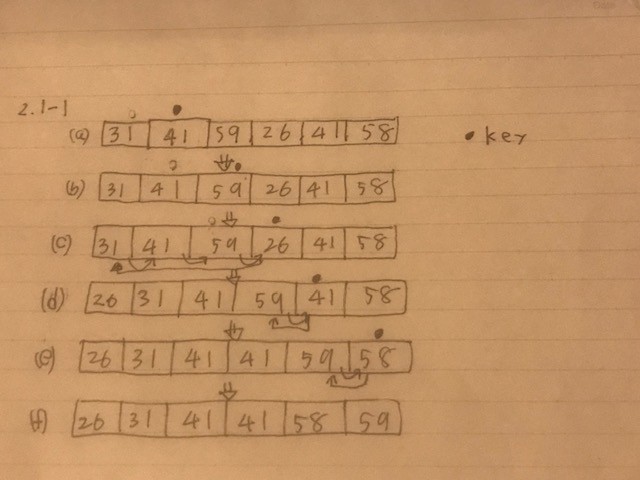 2.1-1
(a) 31 41 59 26 41 58
• key
(b) 31 41 59 26 41 58
(c) 31 41 59 26 41 58
(d) 26 31 41 59 41 58
(e) 26 31 41 41 59 58
(f) 26 31 41 41 58 59